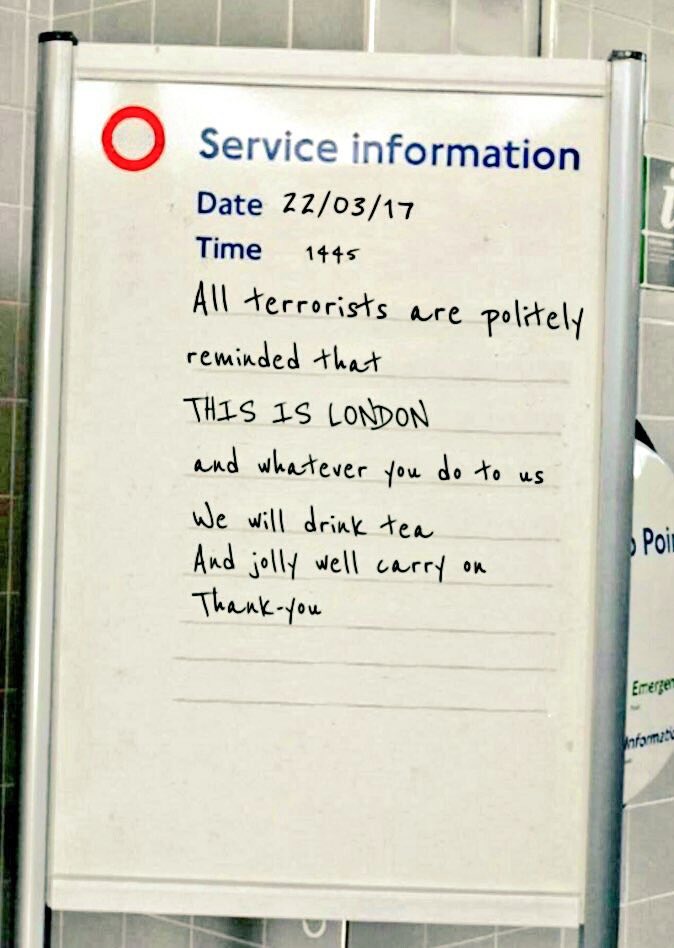 Service information
Date 22/03/17
Time 1445
All terrorists are politely
reminded that
THIS IS LONDON
and whatever you do to us
We will drink tea
And jolly well carry on
Thank-you
i
Poi
Emergen
Informati